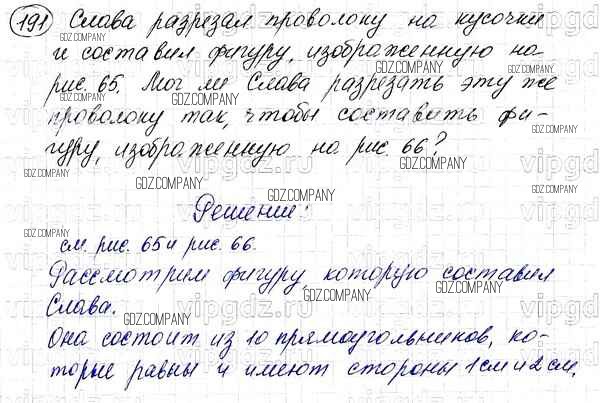 191 Слава разрезал проволоку на кусочки
и составил фигуру, изображенную на
рис. 65. Мог ли Слава разрезать эту же
проволоку так, чтобы составить фи-
гуру, изображенную на рис. 66?
Решение:
см. рис. 65 и рис. 66.
Рассмотрим фигуру, которую составил
Слава.
Она состоит из 10 прямоугольников, ко-
торые равны и имеют стороны 1 см и 2 см.
GDZ.COMPANY
vipgdz.ru